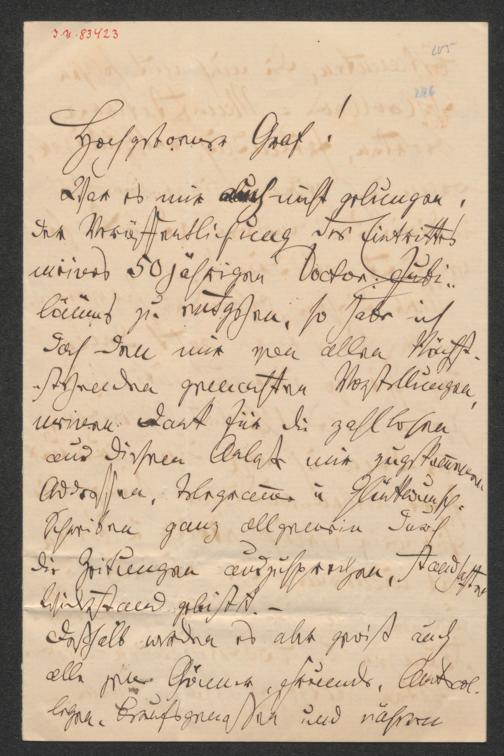 I.N. 83423
205
286
Hochgeborener Graf!
War es mir auch nicht gelungen,
der Veröffentlichung des Eintrittes
meines 50jährigen Doctor-Jubi-
läums zu entgehen, so habe ich
doch den mir von allen Nächst-
stehenden gemachten Vorstellungen,
meinen Dank für die zahllosen
aus diesem Anlaß mir zugekommenen
Addressen, Telegramme u Glückwunsch-
schreiben ganz allgemein durch
die Zeitungen auszusprechen, standhaften
Widerstand geleistet. –
Deßhalb werden es aber gewiß auch
alle jene Gönner, Freunde, Amtscol-
legen, Berufsgenossen und